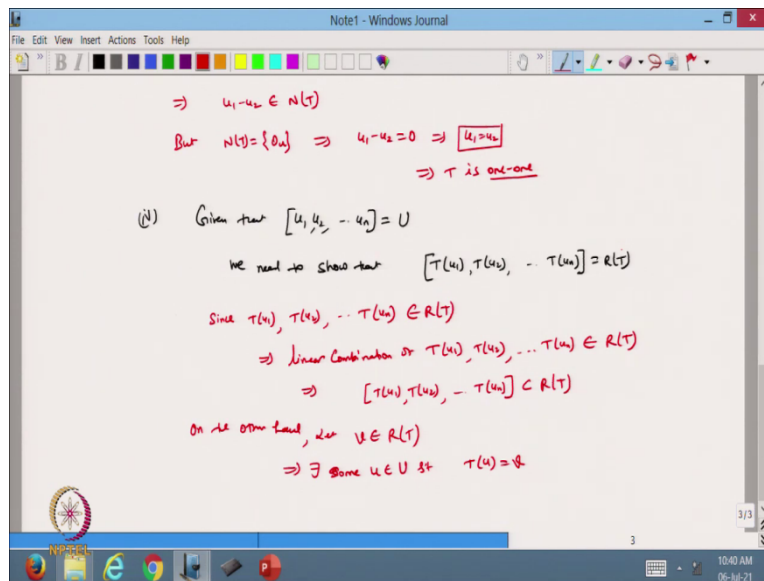 Note1 - Windows Journal
File Edit View Insert Actions Tools Help
B I
⇒ u₁-u₂ ∈ N(T)
But N(T)={0u} ⇒ u₁-u₂=0 ⇒ u₁=u₂
⇒ T is one-one
(iv) Given that [u₁,u₂, -- uₙ] = U
We need to show that [T(u₁), T(u₂), -- T(uₙ)] = R(T)
Since T(u₁), T(u₂), -- T(uₙ) ∈ R(T)
⇒ linear Combination of T(u₁), T(u₂), ... T(uₙ) ∈ R(T)
⇒ [T(u₁), T(u₂), -- T(uₙ)] ⊂ R(T)
On the other hand, let v ∈ R(T)
⇒ ∃ some u ∈ U st T(u) = v
3/3
3
NPTEL
10:40 AM
06-Jul-21